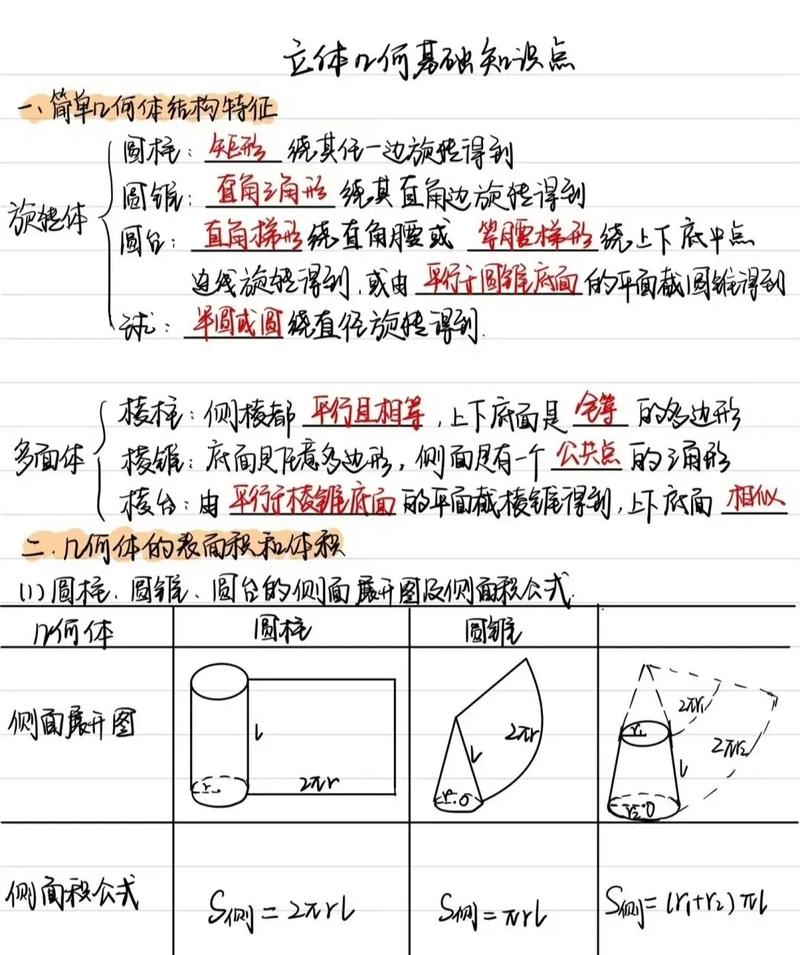 立体几何基础知识点
一、简单几何体结构特征
旋转体
圆柱：矩形 绕其任一边旋转得到
圆锥：直角三角形 绕其直角边旋转得到
圆台：直角梯形 绕直角腰或 等腰梯形 绕上下底中点
连线旋转得到，或由 平行于圆锥底面 的平面截圆锥得到
球：半圆或圆 绕直径旋转得到.
多面体
棱柱：侧棱都 平行且相等，上下底面是 全等 的多边形
棱锥：底面是任意多边形，侧面是有一个 公共点 的三角形
棱台：由 平行于棱锥底面 的平面截棱锥得到，上下底面 相似
二.几何体的表面积和体积
(1)圆柱、圆锥、圆台的侧面展开图及侧面积公式.
几何体 圆柱 圆锥
侧面展开图
l
2πr
r
2πr
l
r
O
2πr₁
2πr₂
r₁
l
r₂
O
侧面积公式 S侧=2πrl S侧=πrl S侧=(r₁+r₂)πl